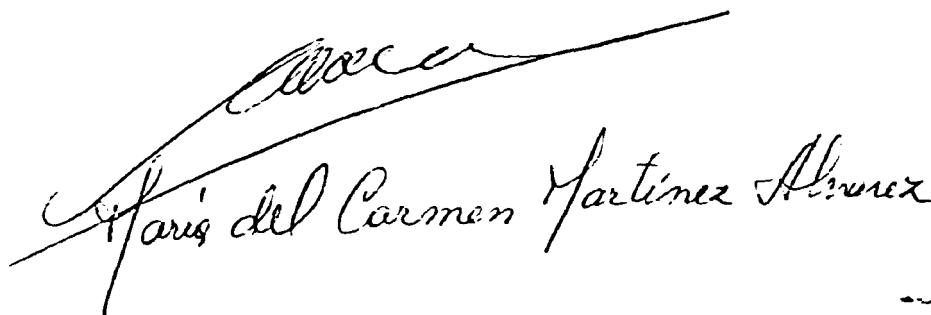 María del Carmen Martínez Alvarez